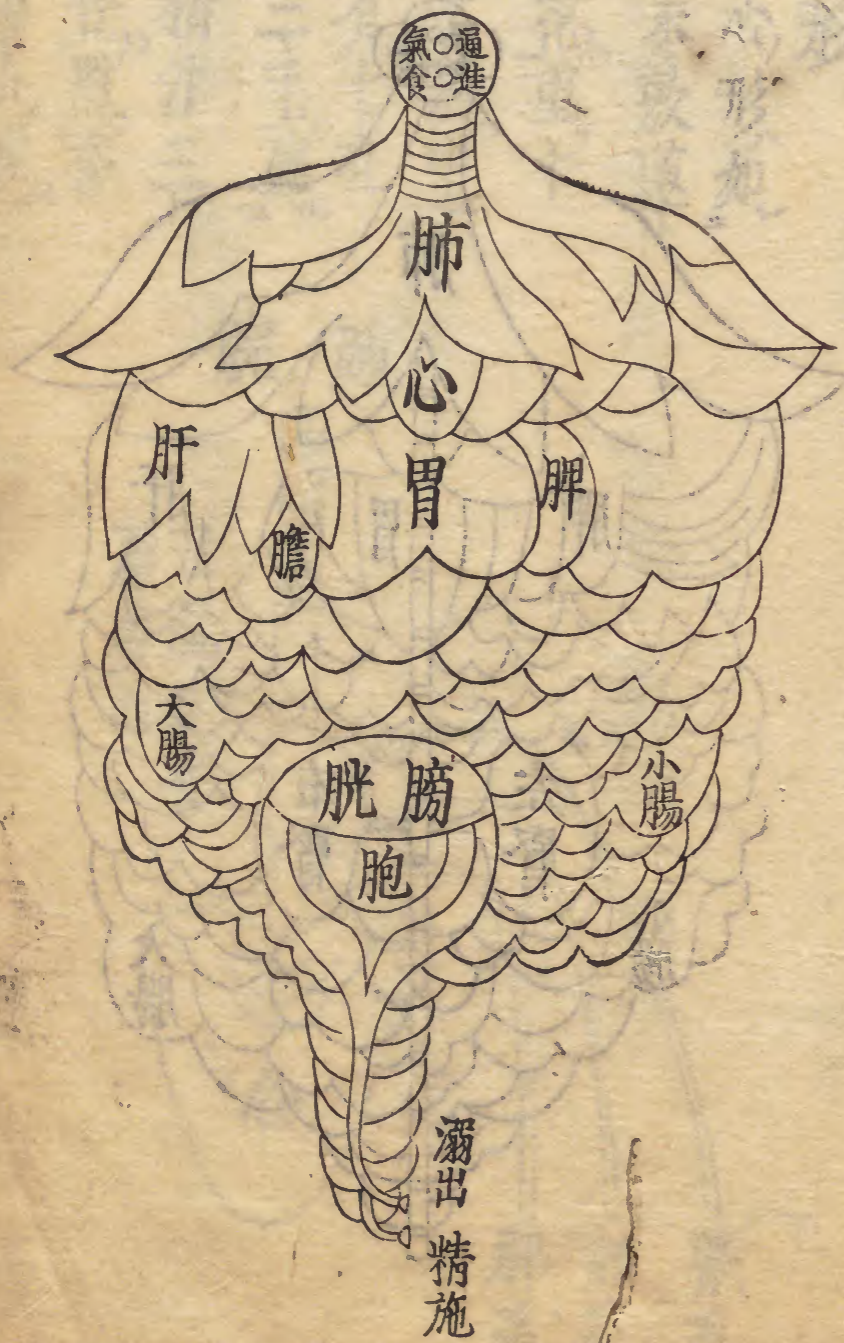 通氣
進食
肺
心
肝
胃
脾
膽
大腸
小腸
膀胱
胞
溺出
精施